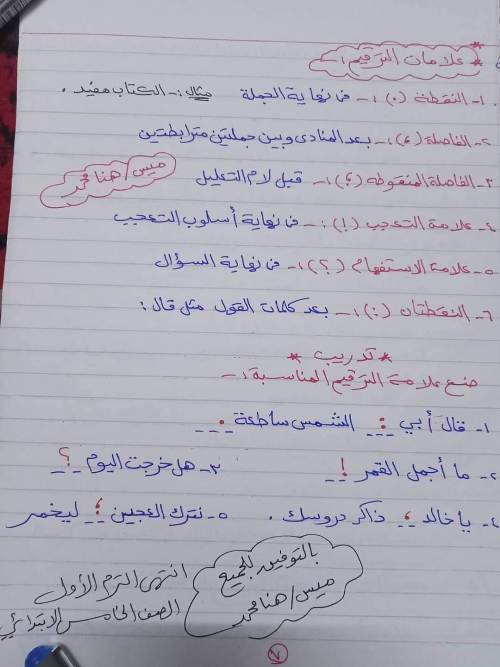 * علامات الترقيم :- *
١- النقطة (.) :- فى نهاية الجملة مثال :- الكتاب مفيد .
٢- الفاصلة (،) :- بعد المنادى وبين جملتين مترابطتين
٣- الفاصلة المنقوطة (؛) :- قبل لام التعليل
ميس / هنا محمد
٤- علامة التعجب (!) :- فى نهاية أسلوب التعجب
٥- علامة الاستفهام (؟) :- فى نهاية السؤال
٦- النقطتان (:) :- بعد كلمات القول مثل قال :
* تدريب *
ضع علامة الترقيم المناسبة :-
١- قال أبي : الشمس ساطعة .
٢- ما أجمل القمر ! ٣- هل خرجت اليوم ؟
٤- يا خالد ، ذاكر دروسك . ٥- نترك العجين ؛ ليخمر
بالتوفيق للجميع
ميس / هنا محمد
انتهى الترم الأول
الصف الخامس الابتدائي
٧